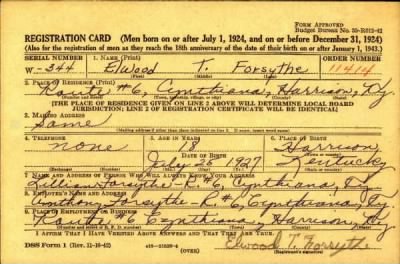 FORM APPROVED
Budget Bureau No. 33-R012-42
REGISTRATION CARD (Men born on or after July 1, 1924, and on or before December 31, 1924)
(Also for the registration of men as they reach the 18th anniversary of the date of their birth on or after January 1, 1943.)
SERIAL NUMBER 1. NAME (Print) ORDER NUMBER
W-344 Elwood T. Forsythe 11414
2. PLACE OF RESIDENCE (Print)
Route #6, Cynthiana, Harrison, Ky.
[THE PLACE OF RESIDENCE GIVEN ON LINE 2 ABOVE WILL DETERMINE LOCAL BOARD
JURISDICTION; LINE 2 OF REGISTRATION CERTIFICATE WILL BE IDENTICAL]
3. MAILING ADDRESS
Same
4. TELEPHONE 5. AGE IN YEARS 6. PLACE OF BIRTH
none 18 Harrison
DATE OF BIRTH
July 1927 Kentucky
7. NAME AND ADDRESS OF PERSON WHO WILL ALWAYS KNOW YOUR ADDRESS
Lillian Forsythe - R#6, Cynthiana, Ky.
8. EMPLOYER'S NAME AND ADDRESS
Anthony Forsythe - R-6, Cynthiana, Ky.
9. PLACE OF EMPLOYMENT OR BUSINESS
Route 6 Cynthiana, Harrison, Ky
I AFFIRM THAT I HAVE VERIFIED ABOVE ANSWERS AND THAT THEY ARE TRUE.
DSS Form 1 (OVER) Elwood T. Forsythe